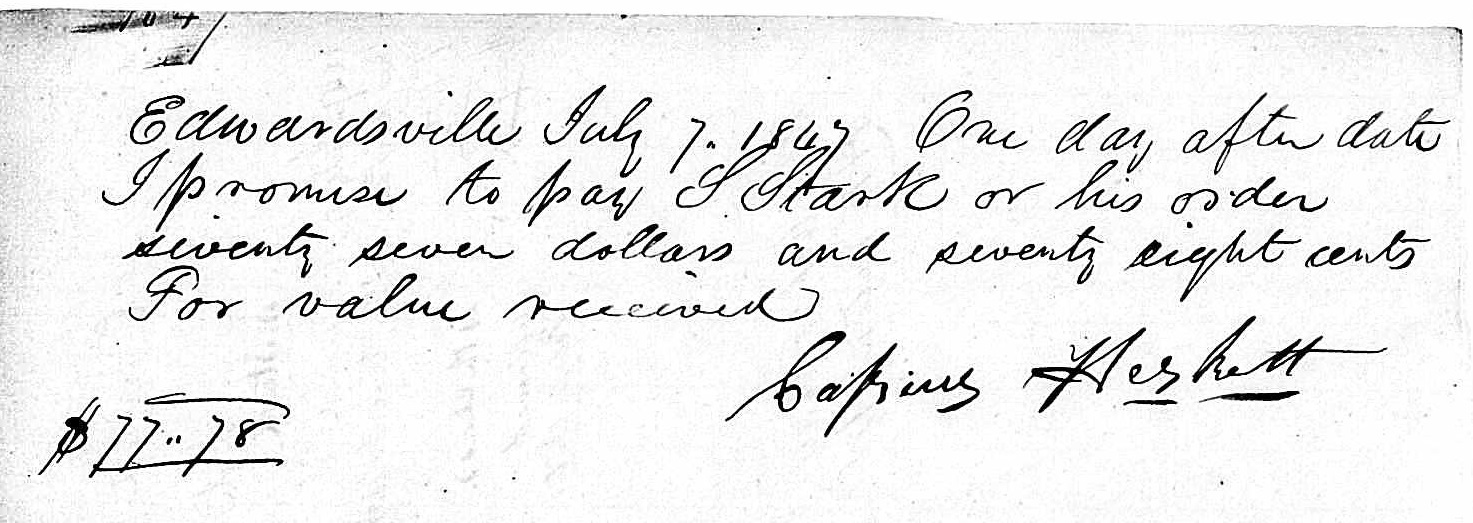 Edwardsville July 7. 1847 One day after date
I promise to pay S Stark or his order
seventy seven dollars and seventy eight cents
For value received
Caſsius Heskett
$77..78